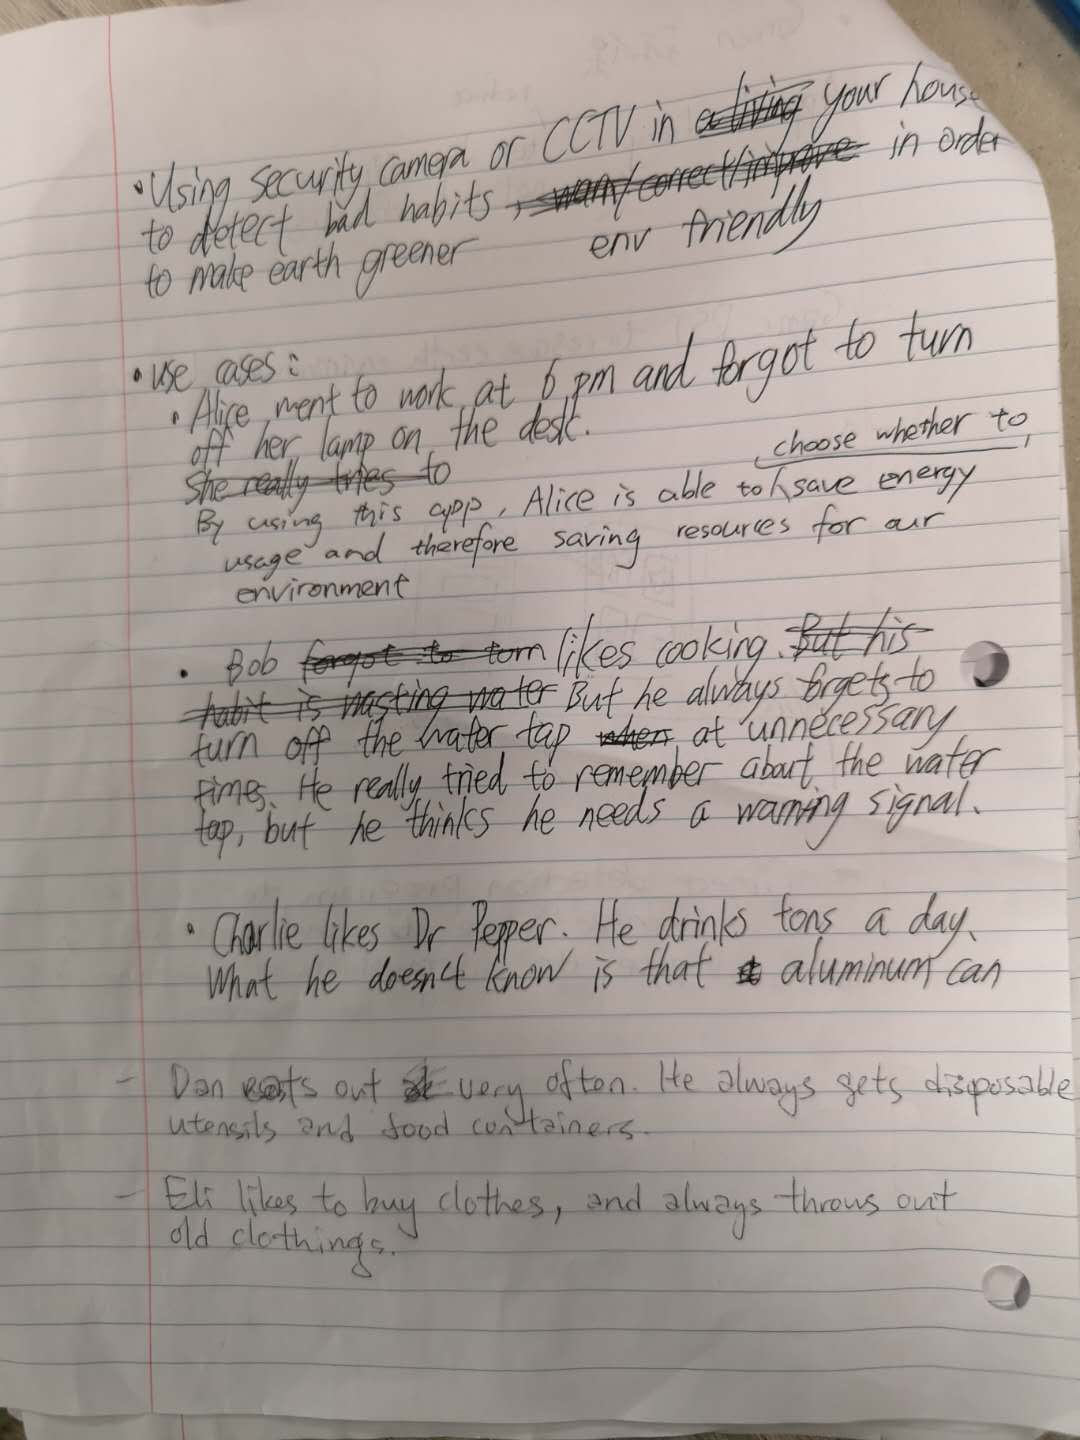 • Using security camera or CCTV in a living your house
to detect bad habits, warn/correct/improve in order
to make earth greener env friendly
• use cases:
• Alice went to work at 6 pm and forgot to turn
off her lamp on the desk.
She really tries to
choose whether to
By using this app, Alice is able to save energy
usage and therefore saving resources for our
environment
• Bob forgot to turn likes cooking. But his
habit is wasting water But he always forgets to
turn off the water tap when at unnecessary
times. He really tried to remember about the water
tap, but he thinks he needs a warning signal.
• Charlie likes Dr Pepper. He drinks tons a day.
What he doesn't know is that aluminum can
- Dan eats out very often. He always gets disposable
utensils and food containers.
- Eli likes to buy clothes, and always throws out
old clothings.